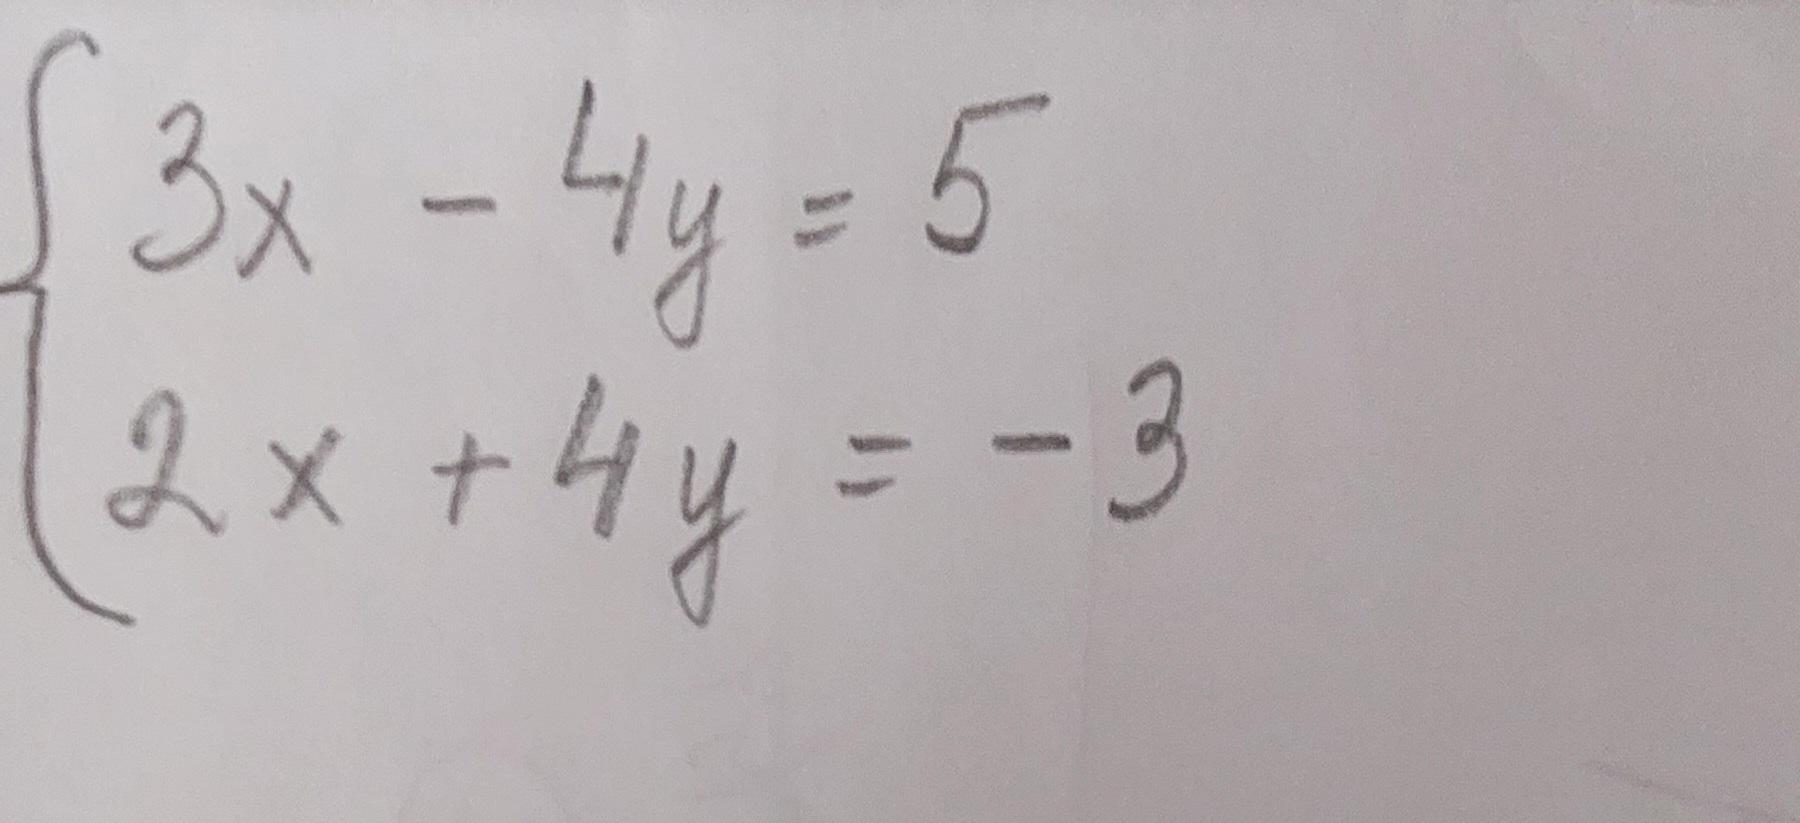 3x - 4y = 5
2x + 4y = -3